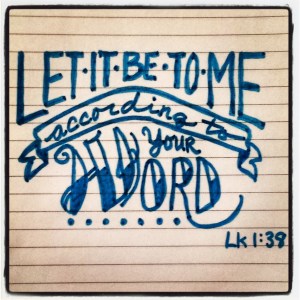 LET·IT·BE·TO·ME
according to
YOUR
WORD
LK 1:38